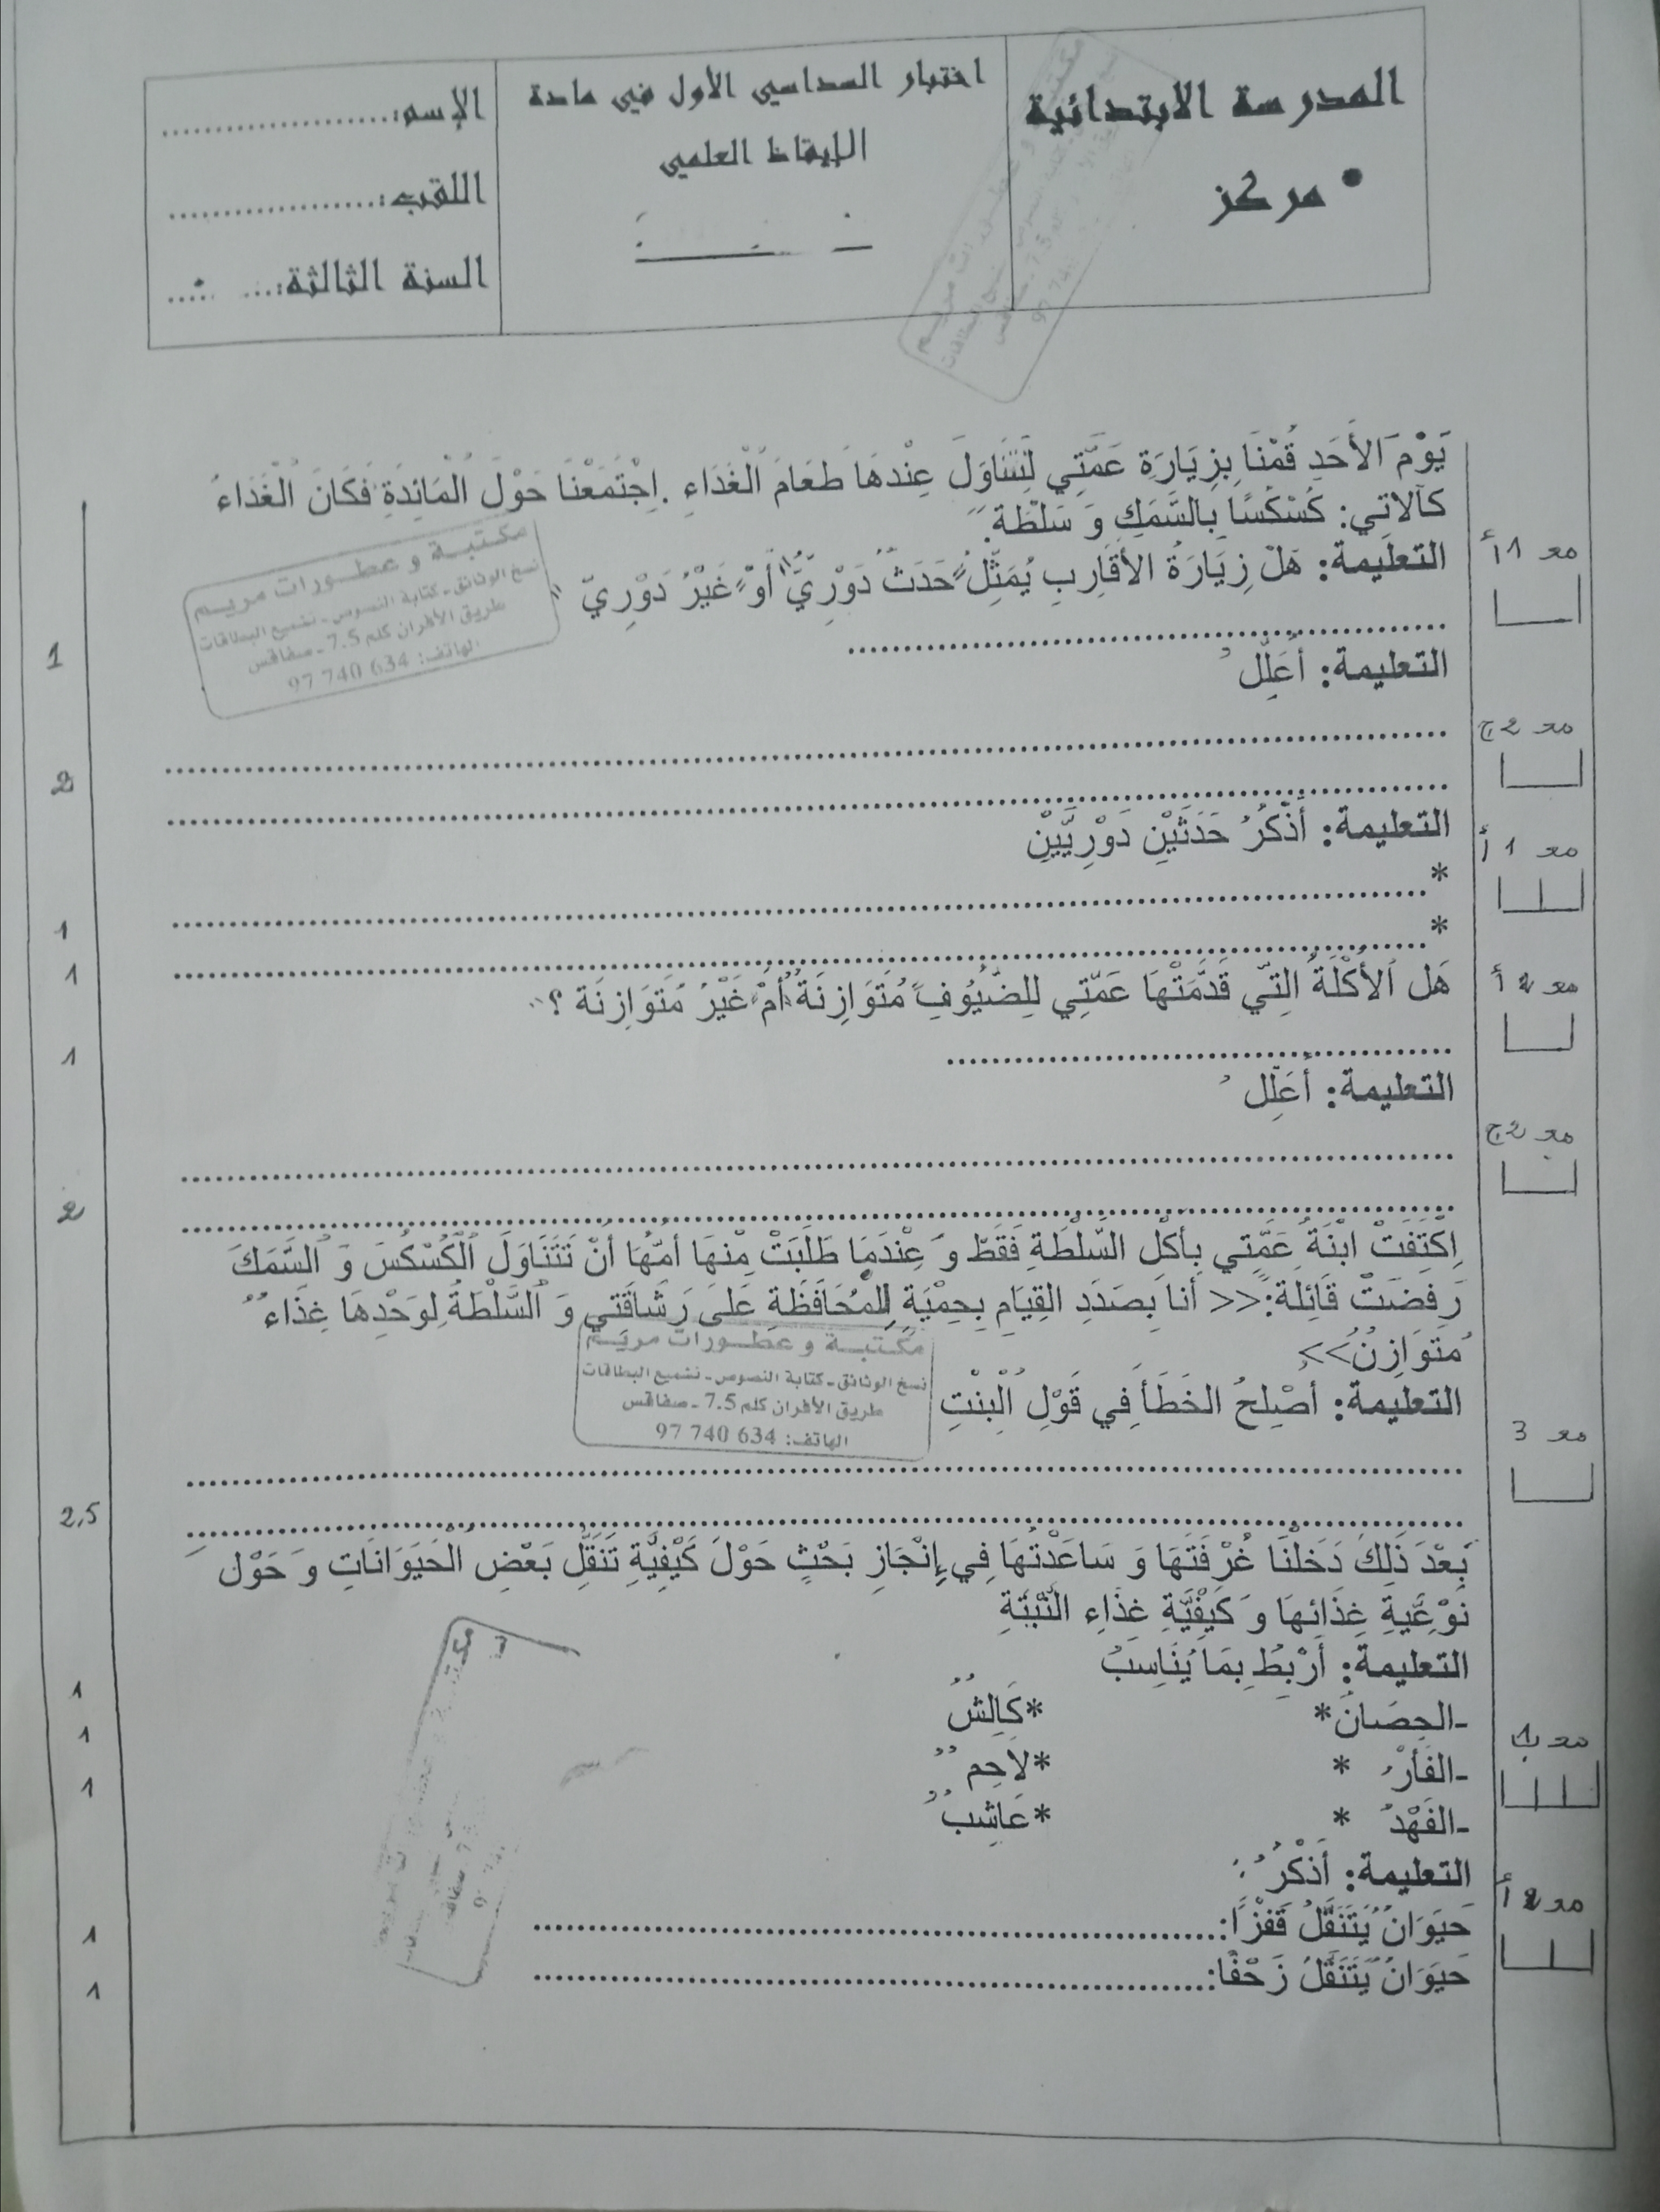 المدرسة الابتدائية
مركز •
اختبار السداسي الأول في مادة
الإيقاظ العلمي
الإسم:......................
اللقب:......................
السنة الثالثة:...
يَوْمَ الأَحَدِ قُمْنَا بِزِيَارَةِ عَمَّتِي لِنَتَنَاوَلَ عِنْدَهَا طَعَامَ الْغَدَاءِ .اِجْتَمَعْنَا حَوْلَ الْمَائِدَةِ فَكَانَ الْغَدَاءُ
كَالآتِي: كُسْكُسًا بِالسَّمَكِ وَ سَلَطَة.
مع 1 أ
التعليمة: هَلْ زِيَارَةُ الأَقَارِبِ يُمَثِّلُ "حَدَثٌ دَوْرِيٌّ" أَوْ "غَيْرُ دَوْرِيّ"
........................................
1
التعليمة: أُعَلِّلُ
مع 2 ج
........................................
2
........................................
التعليمة: أَذْكُرُ حَدَثَيْنِ دَوْرِيَّيْنِ
مع 1 أ
*........................................
1
*........................................
1
هَل الأَكْلَةُ الَّتِي قَدَّمَتْهَا عَمَّتِي لِلضُّيُوفِ "مُتَوَازِنَةٌ" أَمْ "غَيْرُ مُتَوَازِنَة ؟"
مع 2 أ
........................................
1
التعليمة: أُعَلِّلُ
مع 2 ج
........................................
........................................
2
اِكْتَفَتْ ابْنَةُ عَمَّتِي بِأَكْلِ السَّلْطَةِ فَقَطْ وَ عِنْدَمَا طَلَبَتْ مِنْهَا أُمُّهَا أَنْ تَتَنَاوَلَ الْكُسْكُسَ وَ السَّمَكَ
رَفَضَتْ قَائِلَة:<< أَنَا بِصَدَدِ القِيَامِ بِحِمْيَةٍ لِلْمُحَافَظَةِ عَلَى رَشَاقَتِي وَ السَّلْطَةُ لِوَحْدِهَا غِذَاءٌ
مُتَوَازِنٌ>>
التعليمة: أُصْلِحُ الخَطَأَ فِي قَوْلِ الْبِنْتِ
مع 3
........................................
........................................
2,5
بَعْدَ ذَلِكَ دَخَلْنَا غُرْفَتَهَا وَ سَاعَدْتُهَا فِي إِنْجَازِ بَحْثٍ حَوْلَ كَيْفِيَّةِ تَنَقُّلِ بَعْضِ الْحَيَوَانَاتِ وَ حَوْلَ
نَوْعِيَّةِ غِذَائِهَا وَ كَيْفِيَّةِ غِذَاءِ النَّبْتَةِ
التعليمة: أَرْبِطُ بِمَا يُنَاسِبُ
-الحِصَانُ* *كَالِشٌ
1
-الفَأْرُ * *لاَحِمٌ
1
مع 1 ب
-الفَهْدُ * *عَاشِبٌ
1
التعليمة: أَذْكُرُ :
مع 2 أ
حَيَوَانٌ يَتَنَقَّلُ قَفْزًا:........................................
1
حَيَوَانٌ يَتَنَقَّلُ زَحْفًا:........................................
1
مكتبة و عطورات مريم
نسخ الوثائق - كتابة النصوص - تشميع البطاقات
طريق الأفران كلم 7.5 - صفاقس
الهاتف: 634 740 97
مكتبة و عطورات مريم
نسخ الوثائق - كتابة النصوص - تشميع البطاقات
طريق الأفران كلم 7.5 - صفاقس
الهاتف: 634 740 97